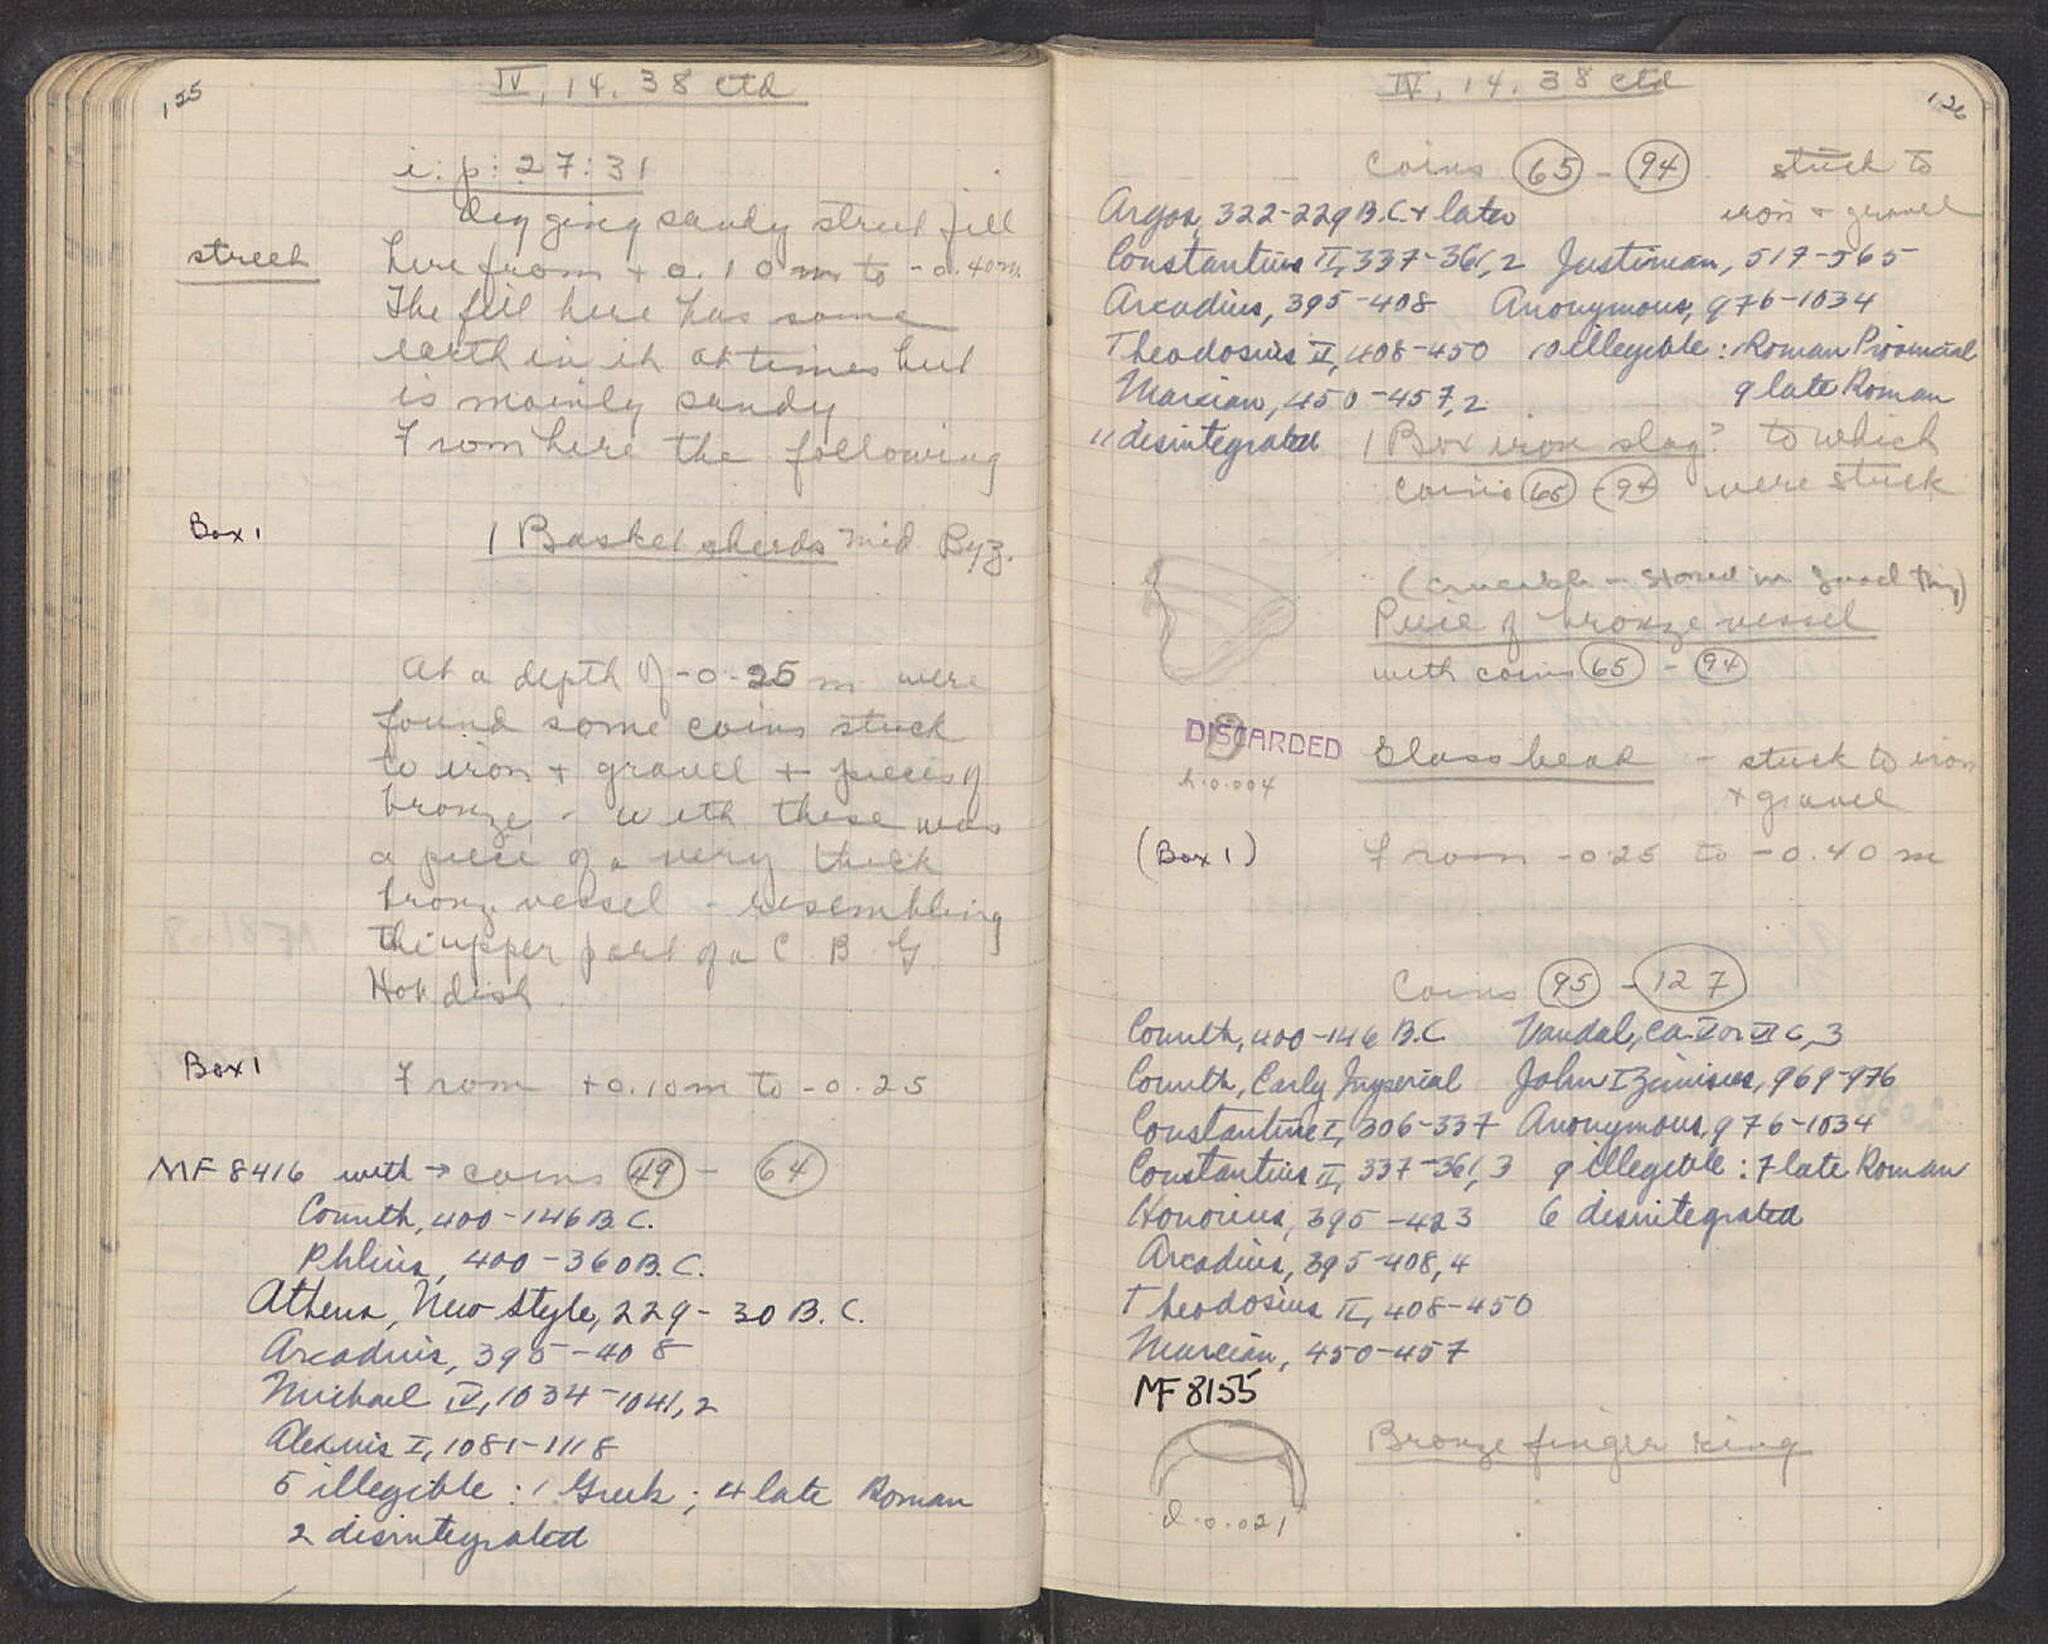 125
IV, 14. 38 ctd
i: p: 27:31
digging sandy street fill
street
here from + 0.10 m to - 0.40 m.
The fill here has some
earth in it at times but
is mainly sandy
From here the following
Box 1
1 Basket sherds mid Byz.
At a depth of -0.25 m were
found some coins stuck
to iron + gravel + pieces of
bronze - with these was
a piece of a very thick
bronze vessel - resembling
the upper part of a C. B. G.
Hot dish.
Box 1
From +0.10m to -0.25
MF 8416 with → coins 49 - 64
Corinth, 400-146 B.C.
Phlius, 400-360 B.C.
Athens, New Style, 229-30 B.C.
Arcadius, 395-408
Michael IV, 1034-1041, 2
Alexius I, 1081-1118
5 illegible: 1 Greek; 4 late Roman
2 disintegrated
126
IV, 14. 38 ctd
Coins 65 - 94 stuck to
iron + gravel
Argos, 322-229 B.C. + later
Constantius II, 337-361, 2 Justinian, 517-565
Arcadius, 395-408 Anonymous, 976-1034
Theodosius II, 408-450 10 illegible: 1 Roman Provincial
Marcian, 450-457, 2 9 late Roman
11 disintegrated 1 Box iron slag? to which
coins 65 - 94 were stuck
(crucible - stored in good thing)
Piece of bronze vessel
with coins 65 - 94
DISCARDED
Glass bead - stuck to iron
+ gravel
h. 0.004
(Box 1) From -0.25 to -0.40 m
Coins 95 - 127
Corinth, 400-146 B.C. Vandal, ca. V or VI C, 3
Corinth, Early Imperial John I Zimisces, 969-976
Constantine I, 306-337 Anonymous, 976-1034
Constantius II, 337-361, 3 9 illegible: 7 late Roman
Honorius, 395-423 6 disintegrated
Arcadius, 395-408, 4
Theodosius II, 408-450
Marcian, 450-457
MF 8155
Bronze finger ring
d. 0.021